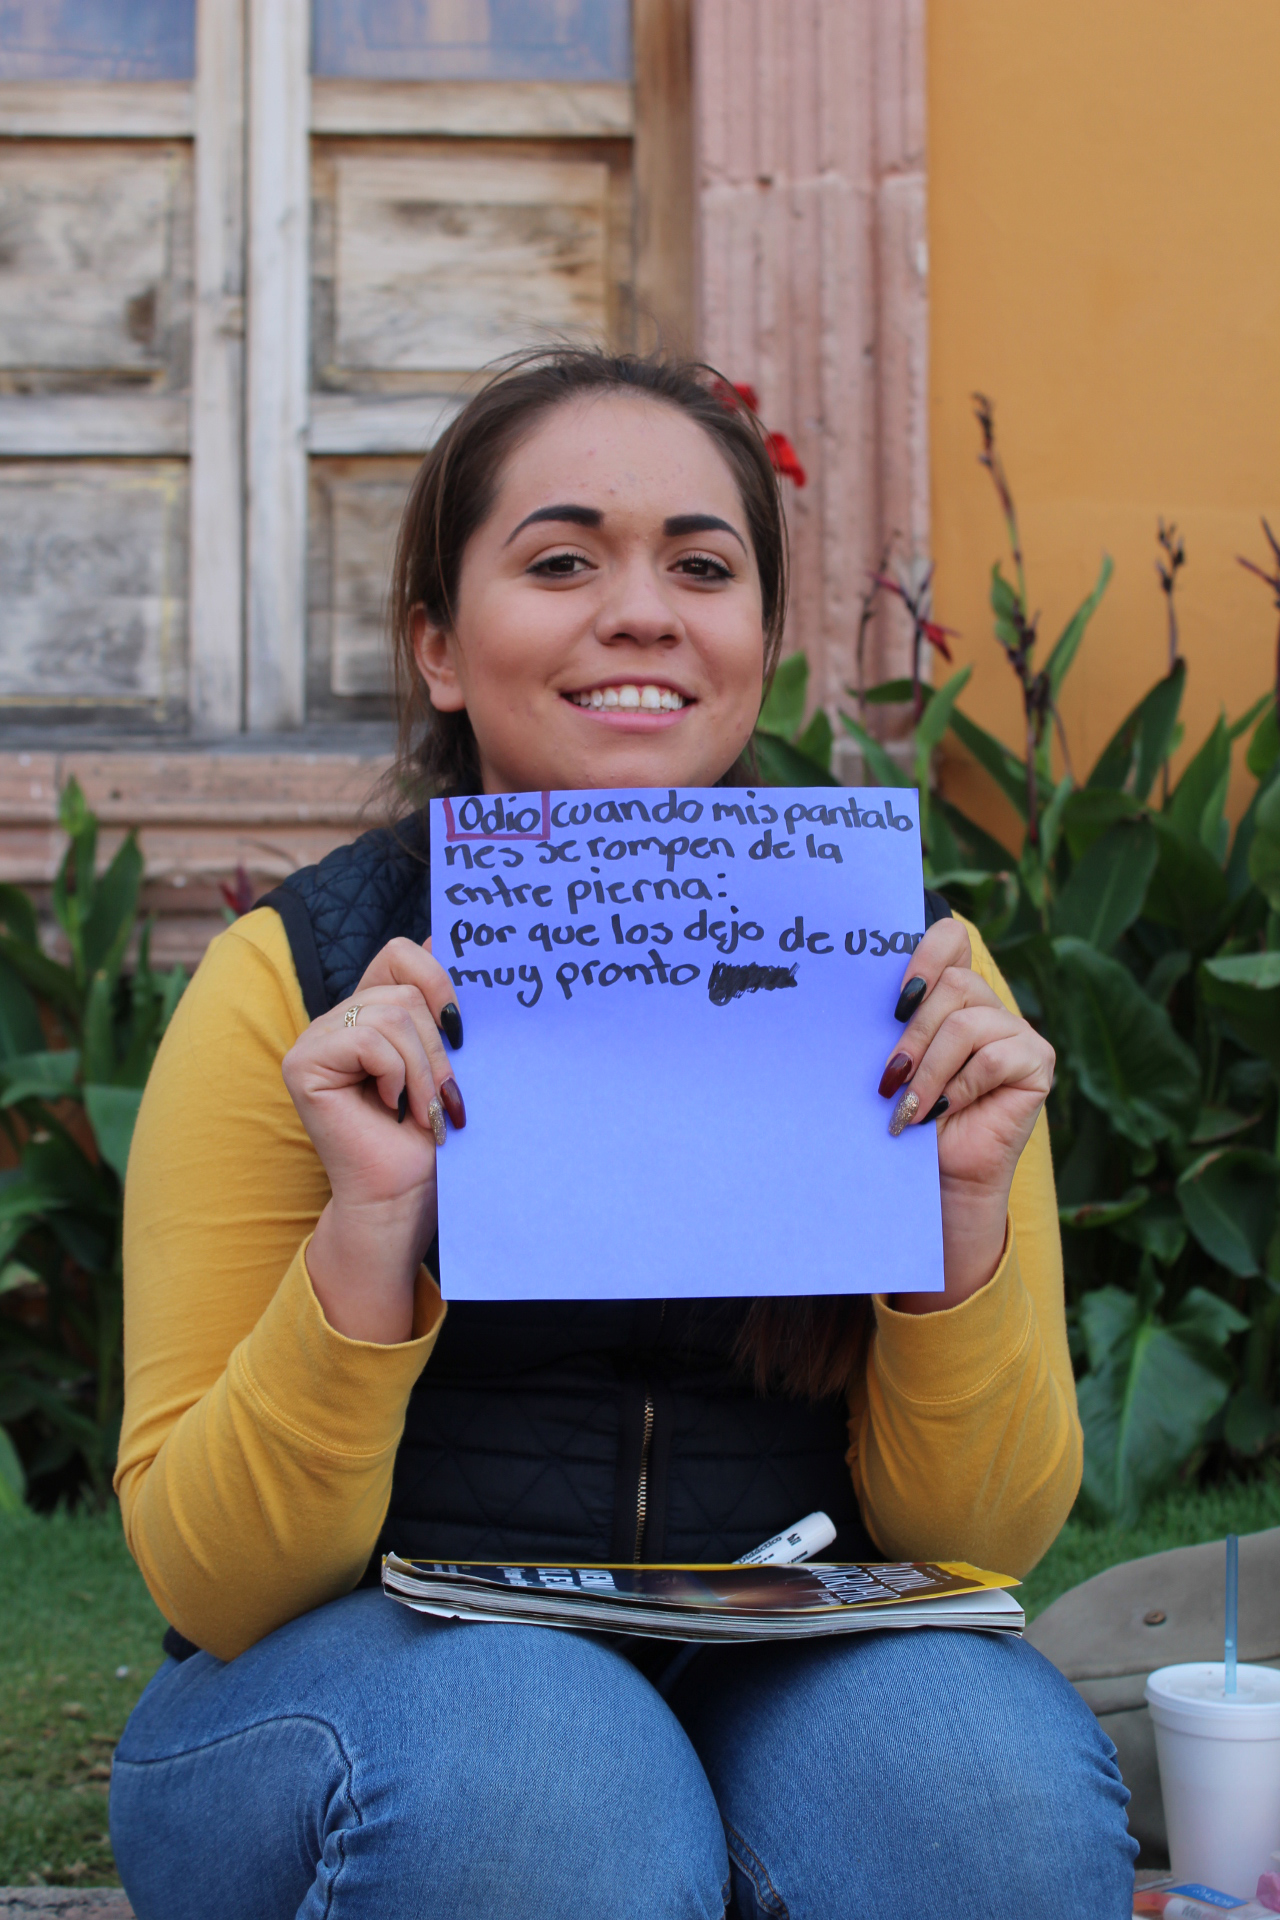 Odio cuando mis pantalo
nes se rompen de la
entre pierna:
por que los dejo de usar
muy pronto